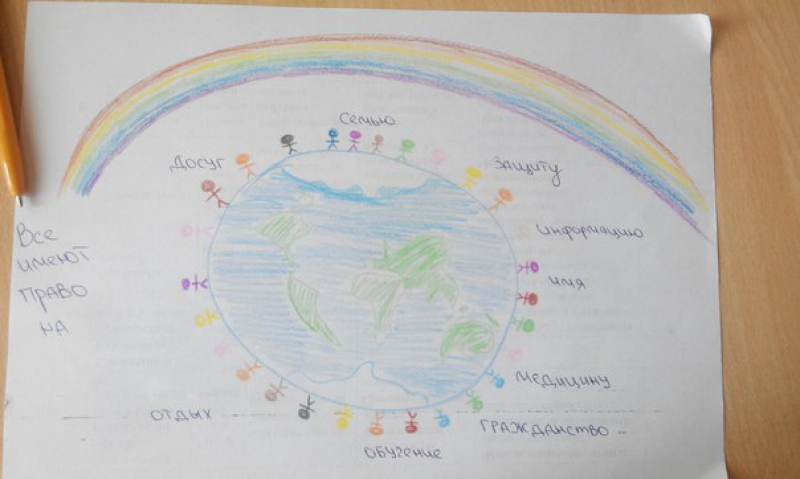 Все
имеют
право
на
Семью
Досуг
Защиту
информацию
имя
медицину
гражданство
отдых
обучение